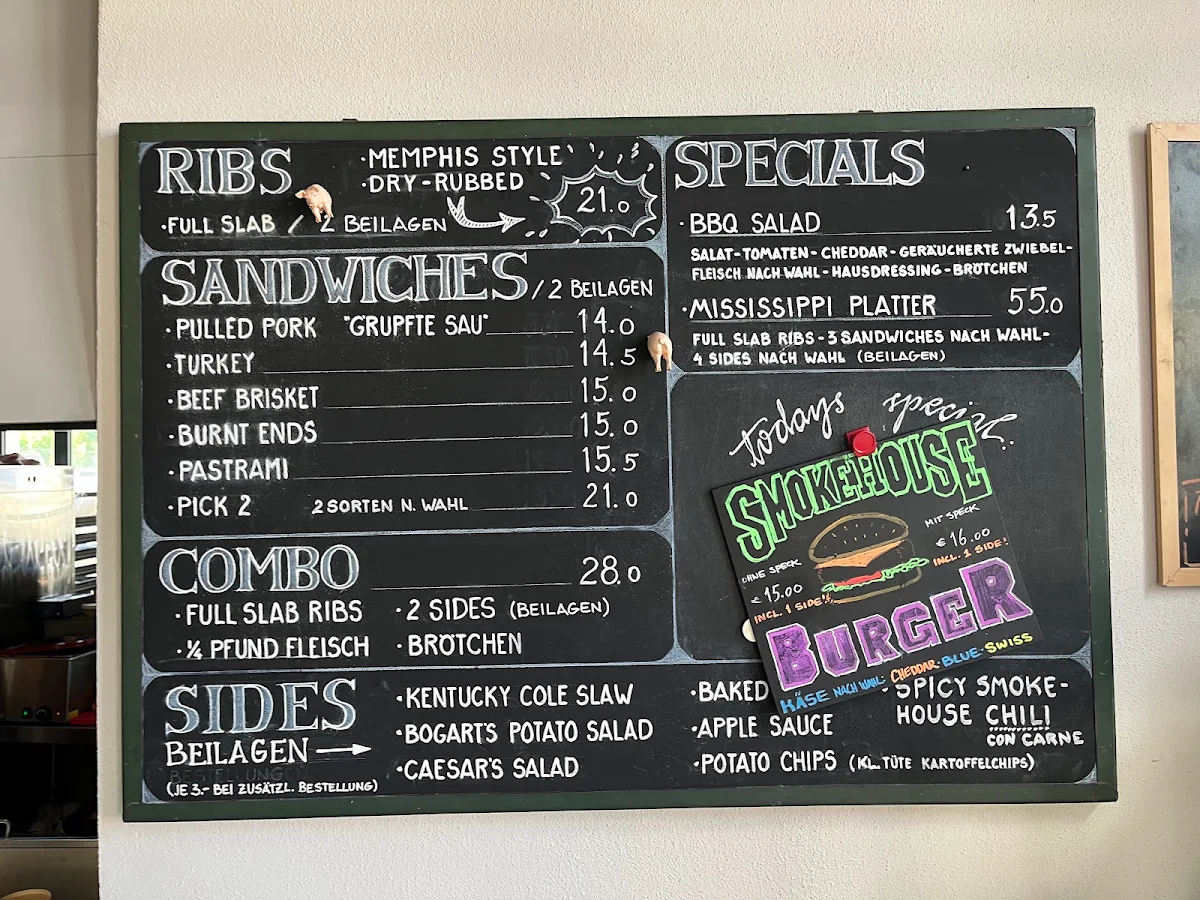 RIBS
·MEMPHIS STYLE
·DRY-RUBBED
·FULL SLAB / 2 BEILAGEN
21.0
SANDWICHES / 2 BEILAGEN
·PULLED PORK "GRUPFTE SAU" 14.0
·TURKEY 14.5
·BEEF BRISKET 15.0
·BURNT ENDS 15.0
·PASTRAMI 15.5
·PICK 2 2 SORTEN N. WAHL 21.0
COMBO 28.0
·FULL SLAB RIBS ·2 SIDES (BEILAGEN)
·¼ PFUND FLEISCH ·BRÖTCHEN
SPECIALS
·BBQ SALAD 13.5
SALAT-TOMATEN-CHEDDAR-GERÄUCHERTE ZWIEBEL-
FLEISCH NACH WAHL-HAUSDRESSING-BRÖTCHEN
·MISSISSIPPI PLATTER 55.0
FULL SLAB RIBS-3 SANDWICHES NACH WAHL-
4 SIDES NACH WAHL (BEILAGEN)
todays special:
SMOKEHOUSE
OHNE SPECK
€ 15.00
INCL. 1 SIDE!
MIT SPECK
€ 16.00
INCL. 1 SIDE!
BURGER
KÄSE NACH WAHL: CHEDDAR·BLUE·SWISS
SIDES
BEILAGEN
BESTELLUNG
(JE 3.- BEI ZUSÄTZL. BESTELLUNG)
·KENTUCKY COLE SLAW
·BOGART'S POTATO SALAD
·CAESAR'S SALAD
·BAKED
·APPLE SAUCE
·POTATO CHIPS (KL. TÜTE KARTOFFELCHIPS)
·SPICY SMOKE-
HOUSE CHILI
CON CARNE